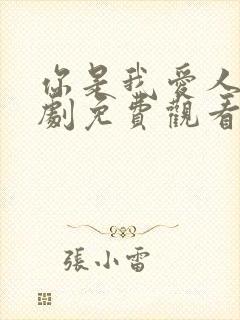 你是我愛人
劇免費觀看
張小雷